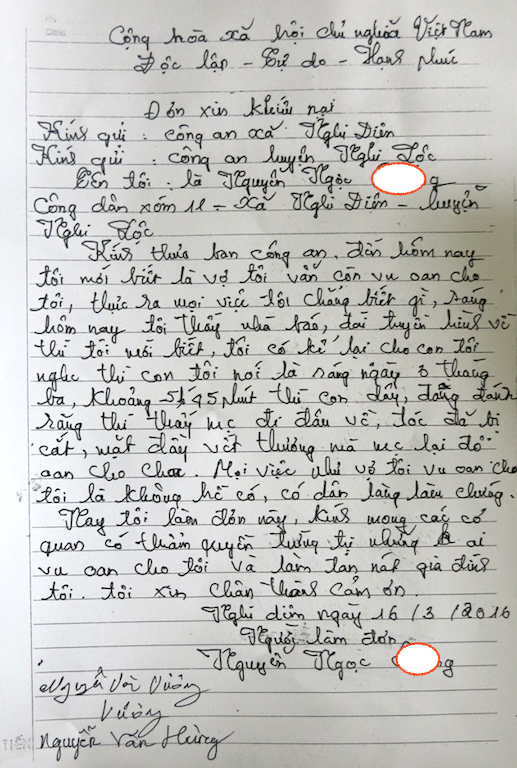 Cộng hòa xã hội chủ nghĩa Việt Nam
Độc lập - Tự do - Hạnh phúc
Đơn xin khiếu nại
Kính gửi : công an xã Nghi Diên
Kính gửi : công an huyện Nghi Lộc
Tên tôi : là Nguyễn Ngọc g
Công dân xóm 11 - xã Nghi Diên - huyện
Nghi Lộc
Kính thưa ban công an, đến hôm nay
tôi mới biết là vợ tôi vẫn còn vu oan cho
tôi, thực ra mọi việc tôi chẳng biết gì, sáng
hôm nay tôi thấy nhà báo, đài truyền hình về
thì tôi mới biết, tôi có kể lại cho con tôi
nghe thì con tôi nói là sáng ngày 3 tháng
ba, khoảng 5h45 phút thì con dậy, đang đánh
răng thì thấy mẹ đi đâu về, tóc đã bị
cắt, mặt đầy vết thương mà mẹ lại đổ
oan cho cha. Mọi việc như vợ tôi vu oan cho
tôi là không hề có, có dân làng làm chứng.
Nay tôi làm đơn này, kính mong các cơ
quan có thẩm quyền trừng trị những ai
vu oan cho tôi và làm tan nát gia đình
tôi. tôi xin chân thành cảm ơn.
Nghi diên ngày 16 / 3 / 2016
Người làm đơn
Nguyễn Ngọc g
Nguyễn Vương
Vương
TIẾN Nguyễn Văn Hùng